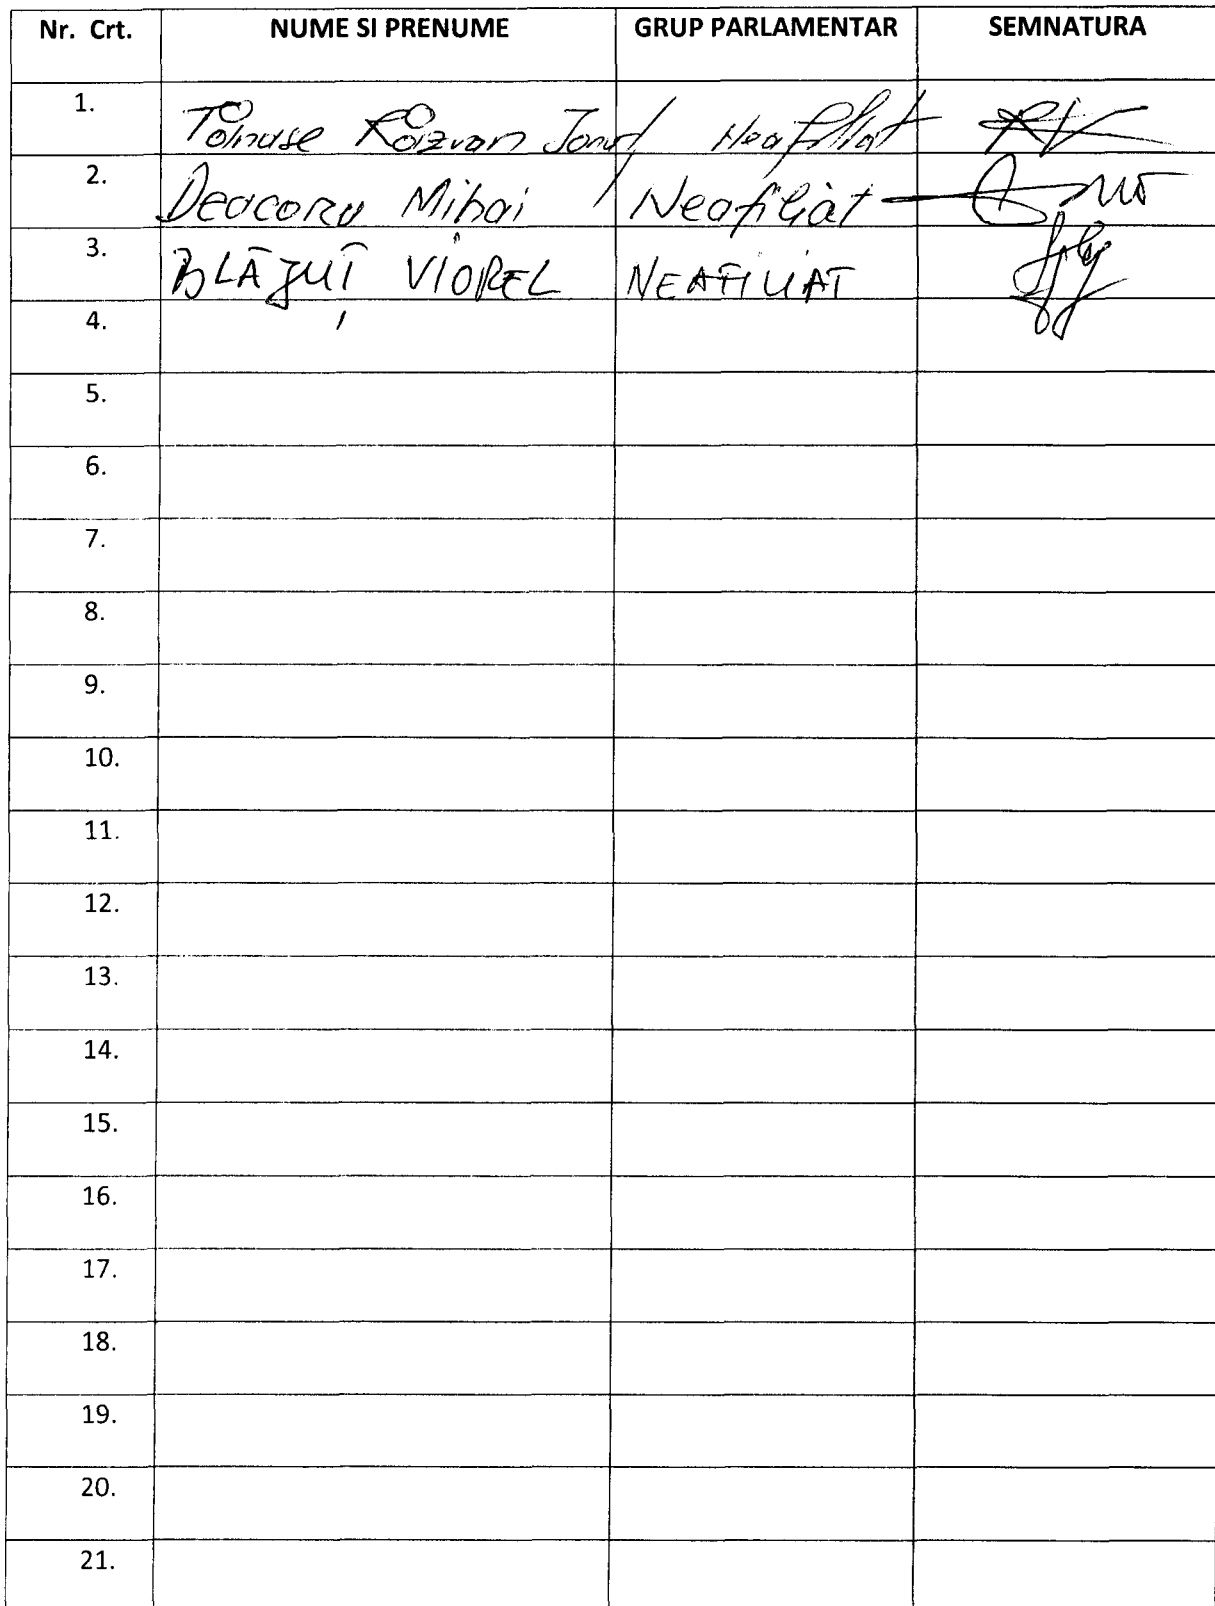 Nr. Crt. NUME SI PRENUME GRUP PARLAMENTAR SEMNATURA
1. Tănase Răzvan Ionuț Neafiliat
2. Deacoru Mihai Neafiliat
3. BLĂJUȚ VIOREL NEAFILIAT
4.
5.
6.
7.
8.
9.
10.
11.
12.
13.
14.
15.
16.
17.
18.
19.
20.
21.